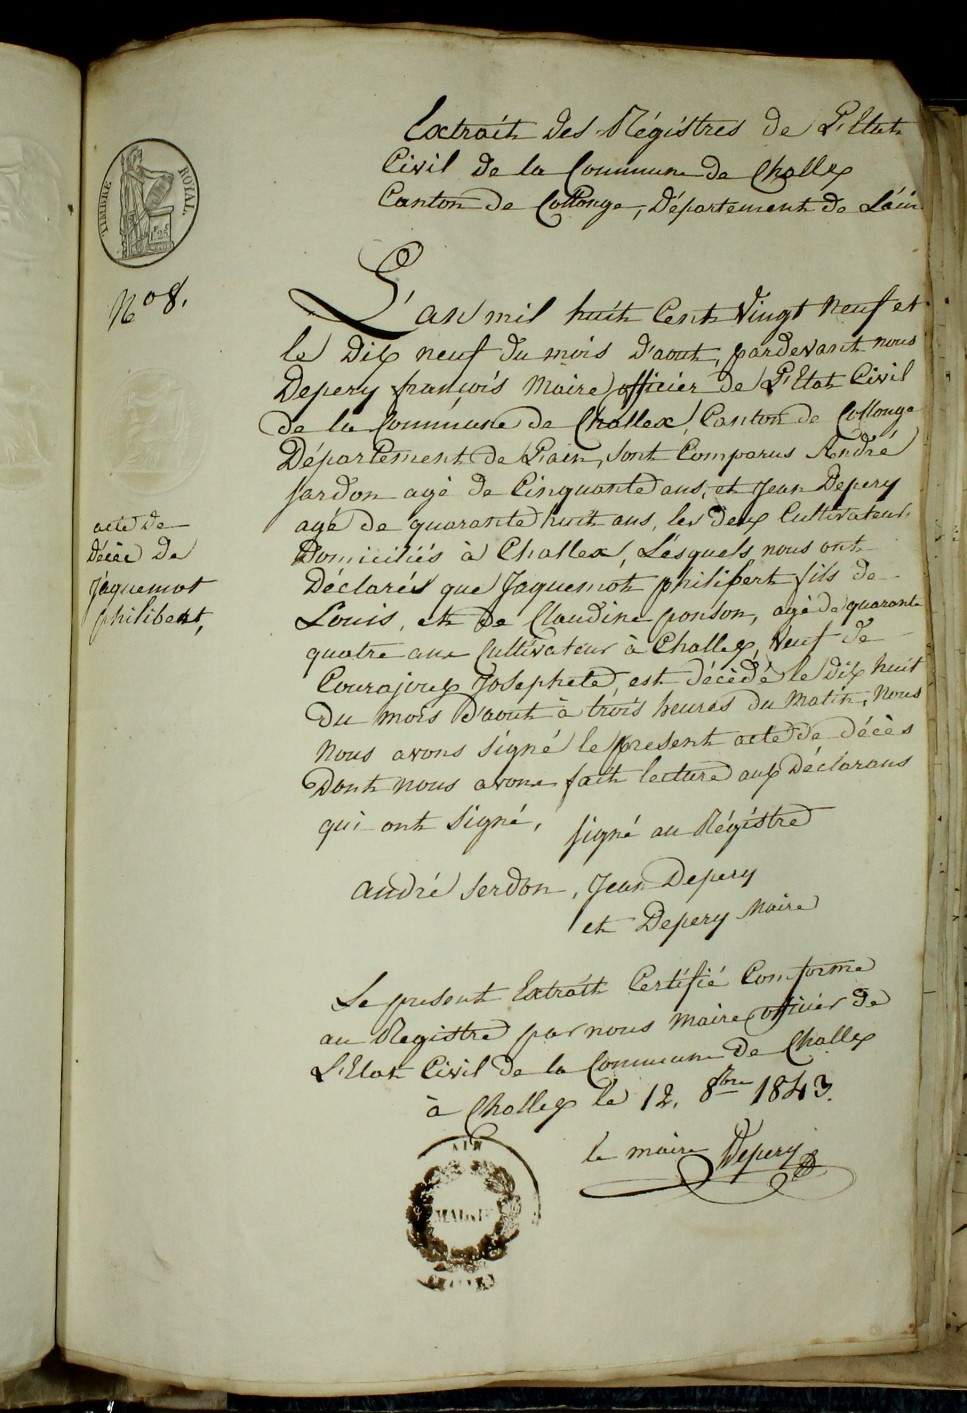 Extrait des Régistres de L'Etat
Civil de la Commune de Challex
Canton de Collonge, Département de L'ain
TIMBRE ROYAL
N° 8.
L'an mil huit Cent Vingt neuf et
le Dix neuf du mois D'aout, pardevant nous
Depery françois Maire officier de L'Etat Civil
de la Commune de Challex, Canton de Collonge
Département de L'ain, sont Comparus André
Sardon agé de Cinquante ans, et Jean Depery
agé de quarante huit ans, les deux Cultivateurs
Domiciliés à Challex, Lésquels nous ont
Déclarés que Jaquemot philibert fils de
Louis, et de Claudine ponson, agé de quarante
quatre ans Cultivateur à Challex, veuf de
Courajoux Josephete, est décèdé le dix huit
Du mois D'aout à trois heures du Matin, nous
nous avons signé le present acte de décès
Dont nous avons fait lecture aux Déclarans
qui ont Signé,
acte de
décès de
Jaquemot
philibert,
signé au Régistre
andré Serdon, Jean Depery
et Depery Maire
Le present Extrait Certifié Conforme
au Registre par nous Maire officier de
L'Etat Civil de la Commune de Challex
à Challex le 12. 8bre 1843.
le maire Depery
AIN
MAIRIE